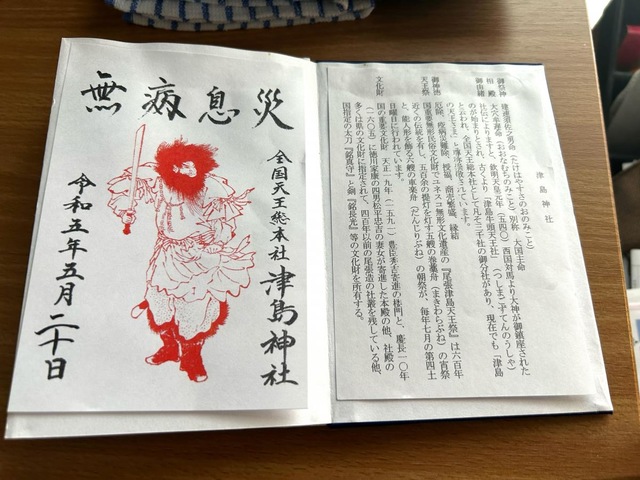 無病息災
全国天王総本社 津島神社
令和五年五月二十日
津島神社
御祭神 建速須佐之男命(たけはやすさのおのみこと)
相殿 大穴牟遅命(おおなむちのみこと)別称 大国主命
御由緒 社伝によりますと、欽明天皇元年(五四〇)西国対馬より大神が御鎮座された
のが始まりとされ、古くより「津島牛頭天王社」(つしまごずてんのうしゃ)
といわれ、全国天王総本社として凡そ三千社の御分社があり、現在でも「津島
の天王さま」と尊崇敬されています。
御神徳 厄除、疫病災難除、授福、商売繁盛、縁結
天王祭 国重要無形民俗文化財でユネスコ無形文化遺産の『尾張津島天王祭』は六百年
近くの伝統を有し、五百余の提灯を灯す五艘の巻藁舟(まきわらぶね)の宵祭
と、能人形を飾る六艘の車楽舟(だんじりぶね)の朝祭が、毎年七月の第四土
日曜日に行われています。
文化財 国の重要文化財 天正一九年(一五九一)豊臣秀吉寄進の楼門と、慶長一〇年
(一六〇五)に徳川家康の四男松平忠吉の妻女が寄進した本殿の他、社殿の
多くは県の文化財に指定されて、四百年以前の尾張造の社叢を残している他、
国指定の太刀『銘真守』と剣『銘長光』等の文化財を所有する。